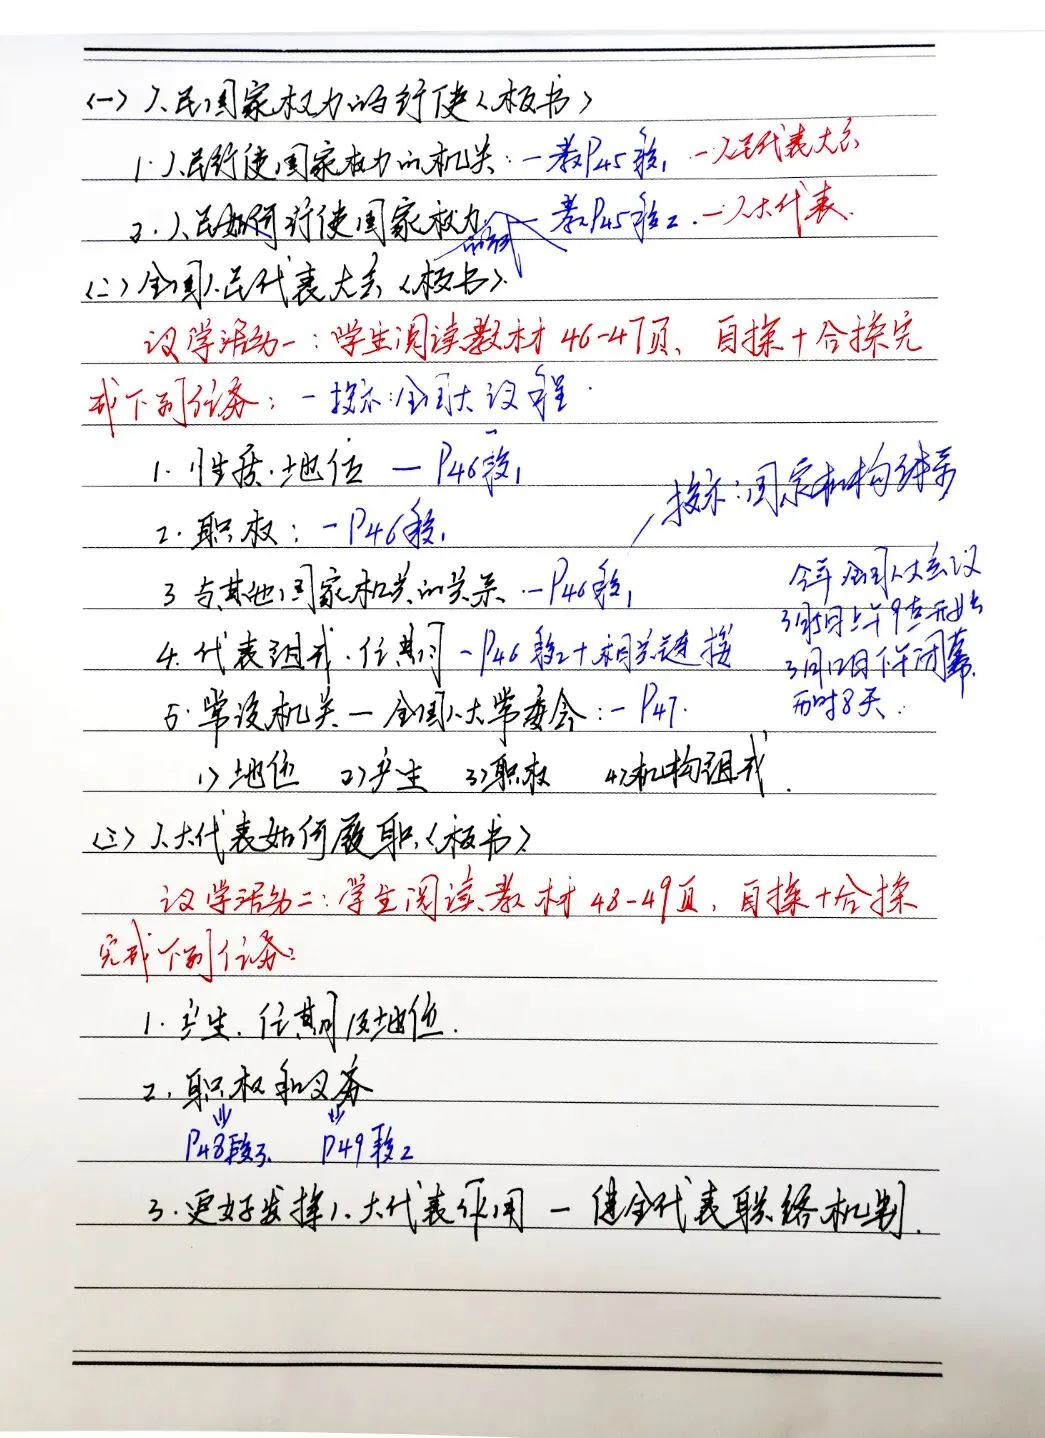 (一)人民国家权力的行使(板书)
1.人民行使国家权力的机关:—教P45段1 —人民代表大会
2.人民如何行使国家权力 —教P45段2.—人大代表.
的方式
(二)全国人民代表大会(板书).
议学活动一:学生阅读教材46-47页、自探+合探完
成下列任务:—投示:全国人大议程.
1.性质.地位 — P46段1
2.职权:—P46段1
投示:国家机构体系
3 与其他国家机关的关系.—P46段1
4.代表组成.任期 —P46段2+相关链接
5.常设机关—全国人大常委会:—P47.
今年全国人大会议
3月5日上午9点开始
3月12日下午闭幕.
历时8天.
1)地位 2)产生 3)职权 4)机构组成.
(三)人大代表如何履职(板书)
议学活动二:学生阅读教材48-49页、自探+合探
完成下列任务:
1.产生.任期及地位.
2.职权和义务
P48段3. P49段2
3.更好发挥人大代表作用—健全代表联络机制.